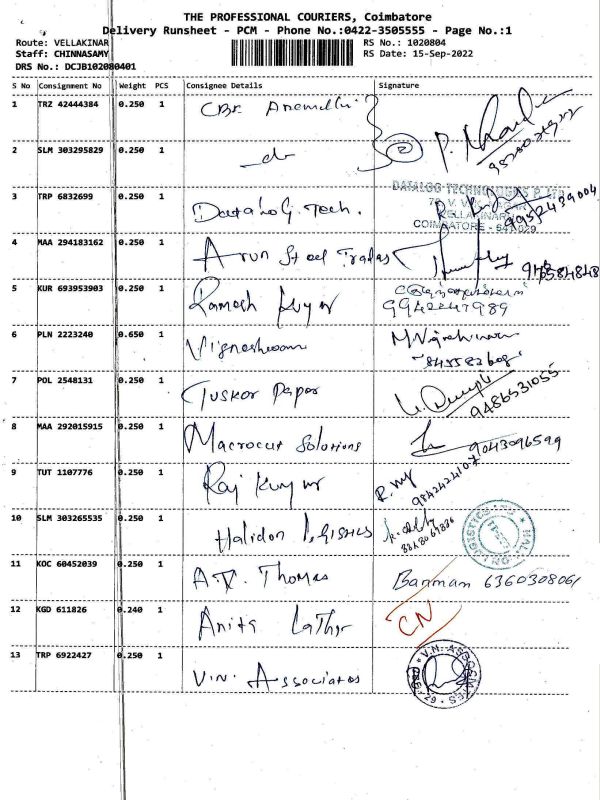 THE PROFESSIONAL COURIERS, Coimbatore
Delivery Runsheet - PCM - Phone No.:0422-3505555 - Page No.:1
Route: VELLAKINAR
RS No.: 1020804
Staff: CHINNASAMY
RS Date: 15-Sep-2022
DRS No.: DCJB102080401
S No Consignment No Weight PCS Consignee Details Signature
1 TRZ 42444384 0.250 1 CBE
2 SLM 303295829 0.250 1 do
3 TRP 6832699 0.250 1 Datalog Tech.
DATALOG TECHNOLOGIES P. LTD
VELLAKINAR
COIMBATORE - 641 029
9952439004
4 MAA 294183162 0.250 1 Arun Steel Trades
5 KUR 693953903 0.250 1 Ramesh Kumar
9942247989
6 PLN 2223240 0.650 1 Vigneshwaran
7 POL 2548131 0.250 1 Tusker Paper
9486531055
8 MAA 292015915 0.250 1 Macrocut Solutions 9043096599
9 TUT 1107776 0.250 1 Raj Kumar
9842424107
10 SLM 303265535 0.250 1
11 KOC 60452039 0.250 1 A.V. Thomas Barman 6360308061
12 KGD 611826 0.240 1 Anita CN
13 TRP 6922427 0.250 1 V.N. Associates
V.N. ASSOCIATES